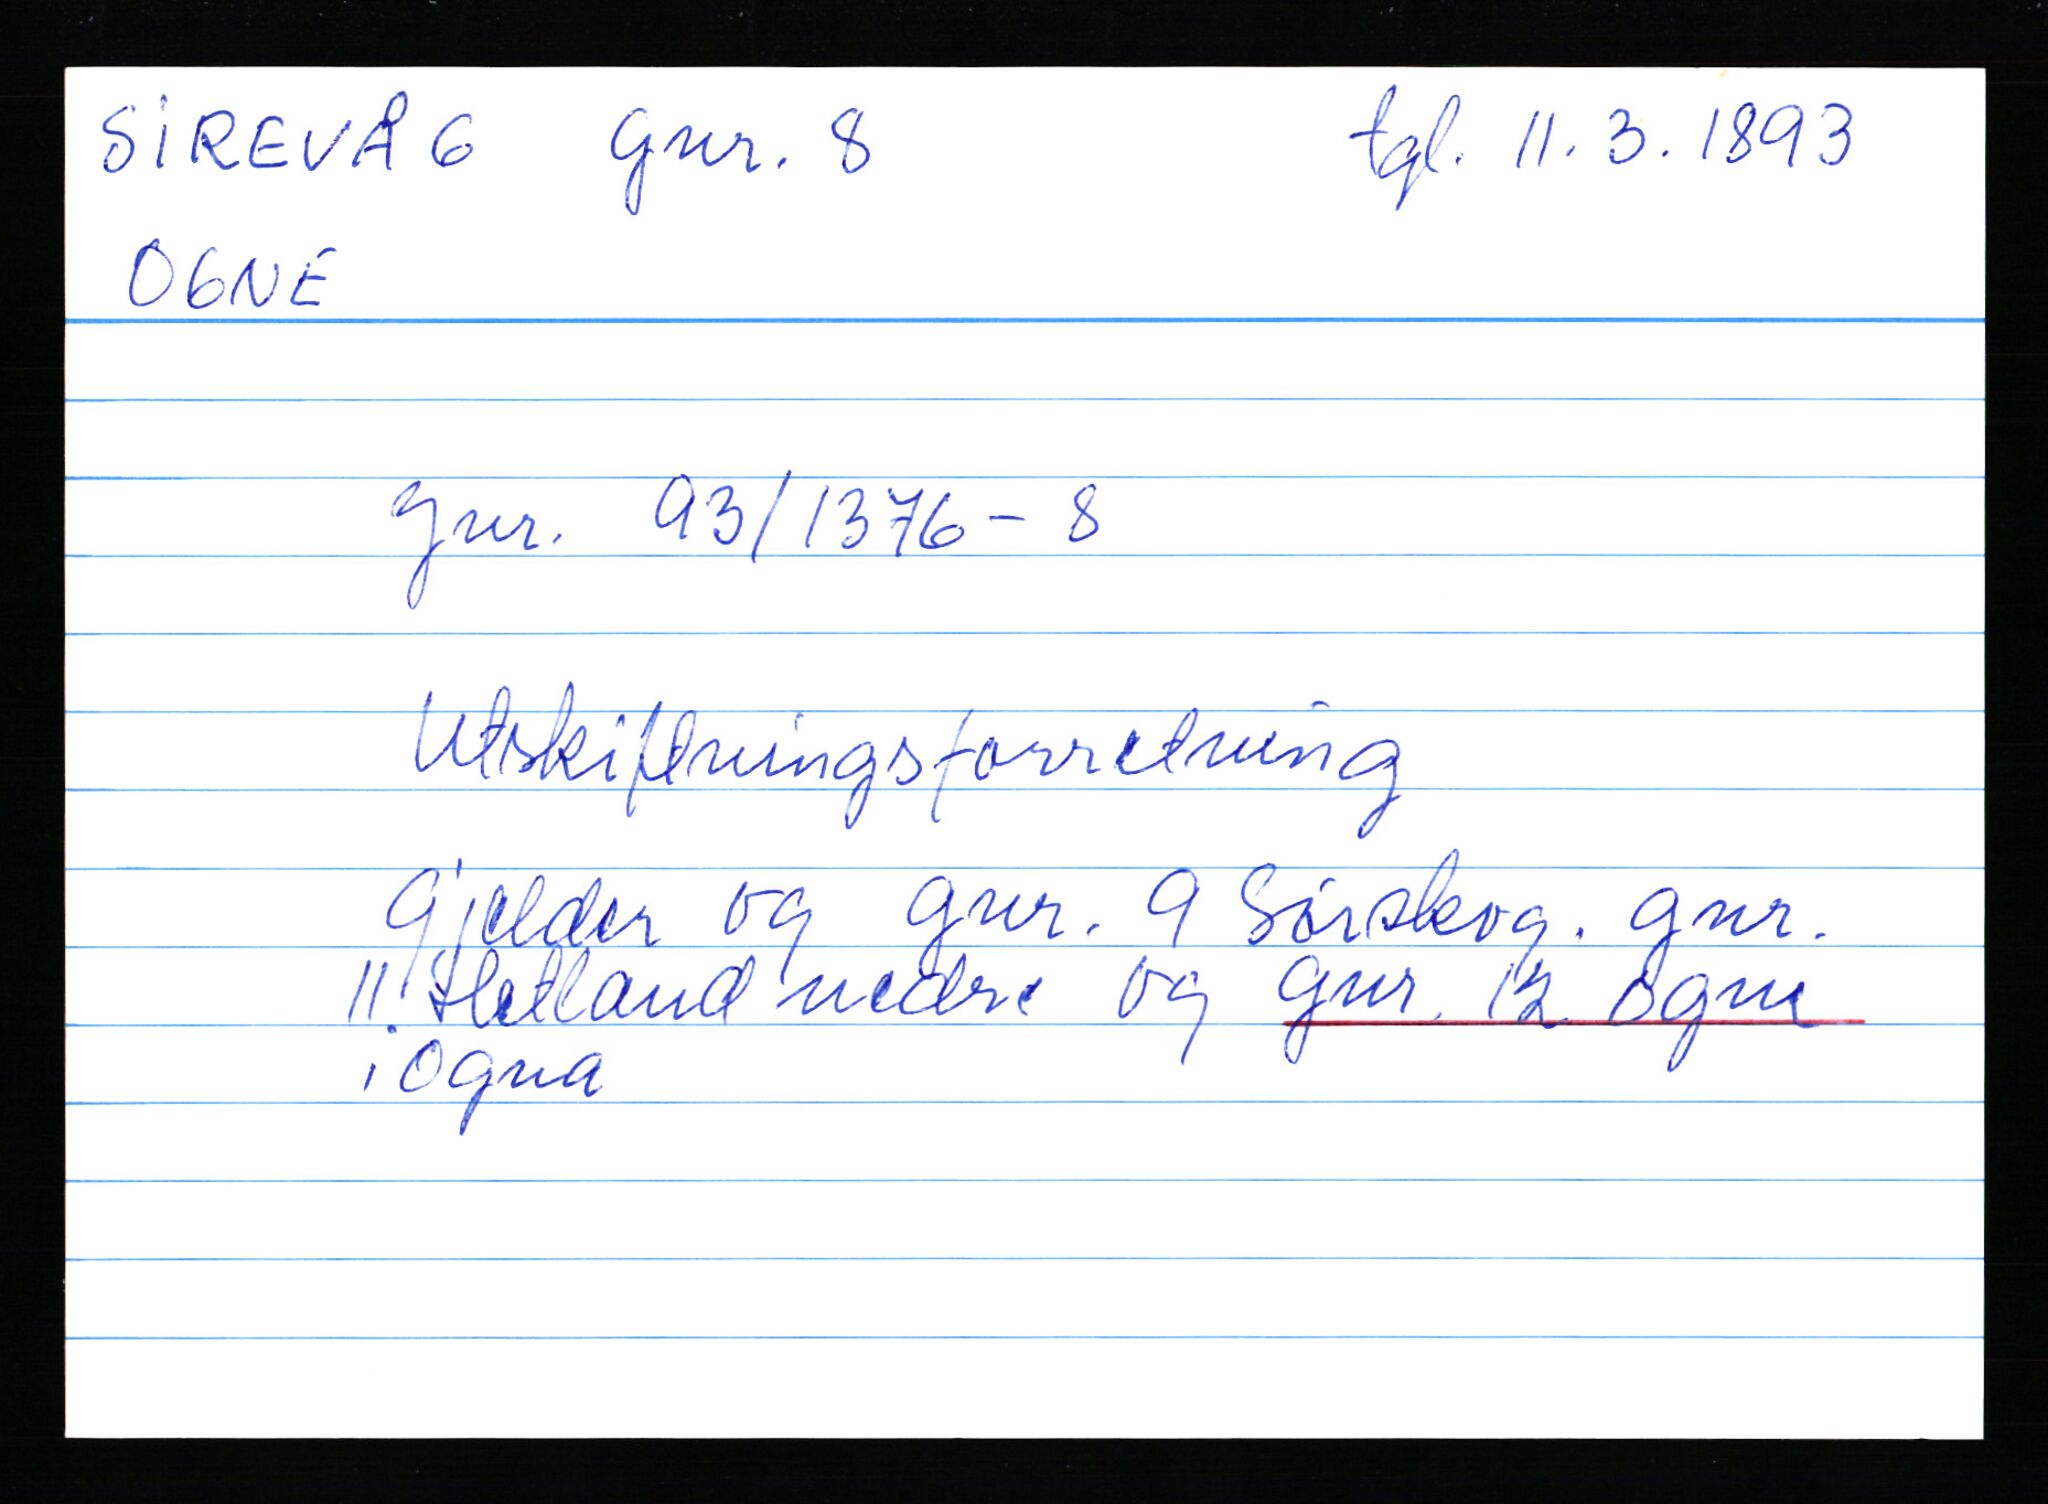 SIREVÅG gnr. 8 tgl. 11.3.1893
OGNE
gnr. 93/1376-8
Utskiftningsforretning
Gjelder og gnr. 9 Sørskog. gnr.
11. Hetland nedre og gnr. 12 Ogne
i Ogna